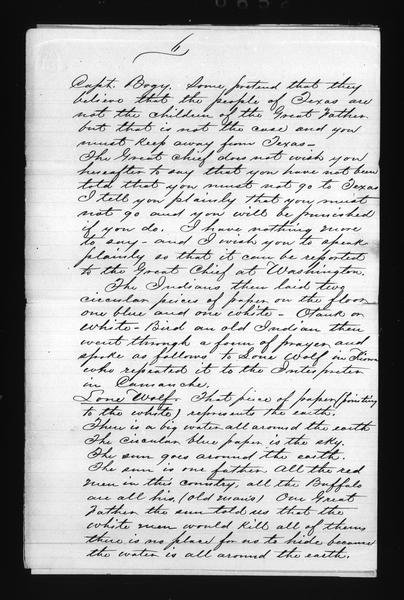 6
Capt. Bogy. Some pretend that they
believe that the people of Texas are
not the children of the Great Father
but that is not the case and you
must keep away from Texas—
The Great Chief does not wish you
hereafter to say that you have not been
told that you must not go to Texas
I tell you plainly that you must
not go and you will be punished
if you do. I have nothing more
to say – and I wish you to speak
plainly so that it can be reported
to the Great Chief at Washington.
The Indians then laid two
circular pieces of paper on the floor
one blue and one white – Otank or
White-Bird an old Indian then
went through a form of prayer and
spoke as follows to Lone Wolf in Kiowa
who repeated it to the Interpreter
in Camanche.
Lone Wolf. That piece of paper (pointing
to the white) represents the earth.
There is a big water all around the earth
The circular blue paper is the sky.
The sun goes around the earth.
The sun is our father. All the red
men in this country, all the Buffalo
are all his, (old man's) Our Great
Father the sun told us that the
white men would kill all of them
there is no place for us to hide because
the water is all around the earth.